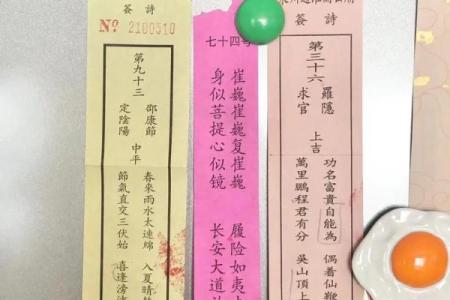 簽詩
№ 2100310
第九十三
邵康節定陰陽
中平
春來雨水太連綿
入夏晴
節氣直交三伏始
喜逢滂
七十四号
崔巍崔巍复崔巍
履险如夷
身似菩提心似镜
长安大道
簽詩
第三十六
羅隱求官
上吉
功名富貴自能為
偶着仙鞭
萬里鵬程君有分
吳山頂上